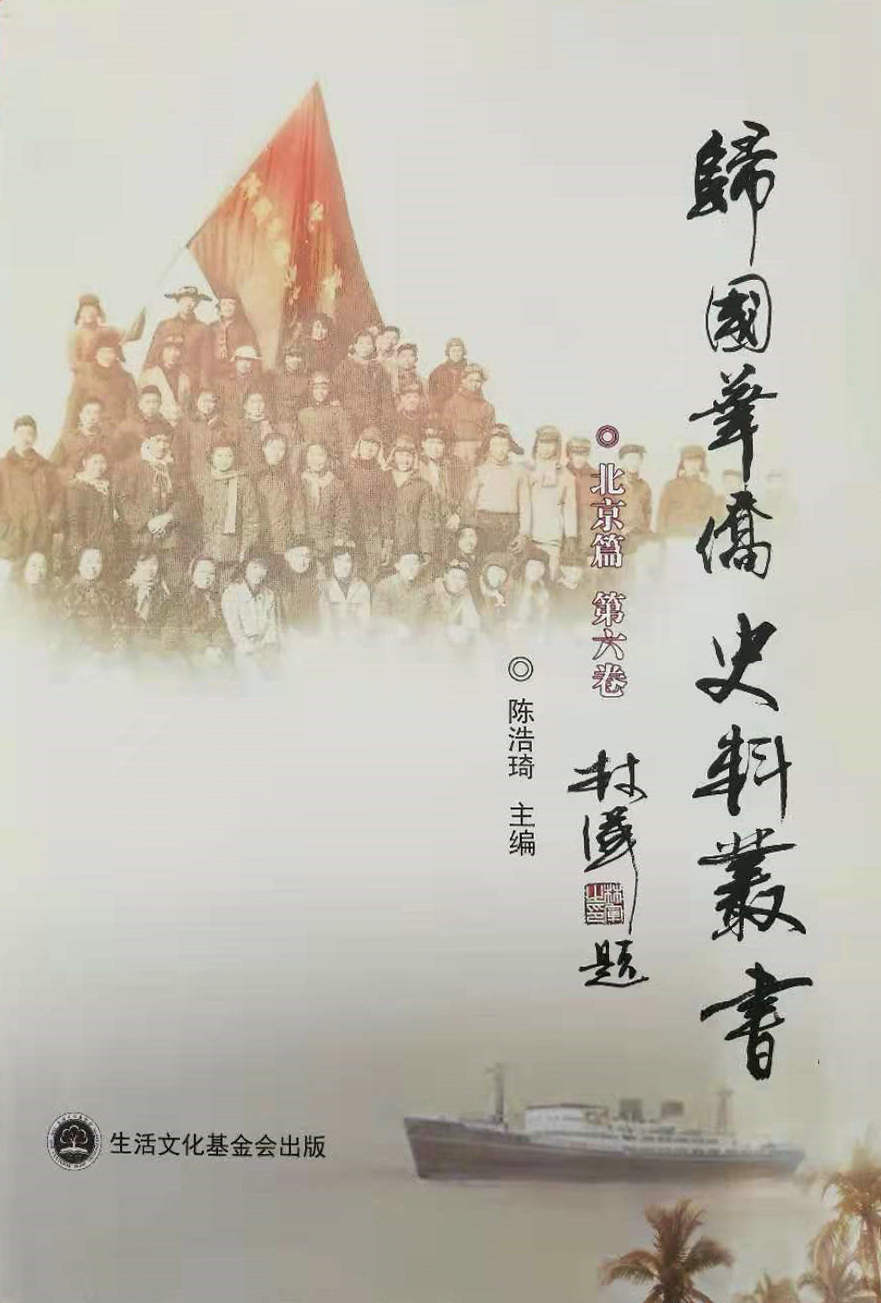 歸國華僑史料叢書
北京篇 第六卷
陈浩琦 主编
林军
题
生活文化基金会出版